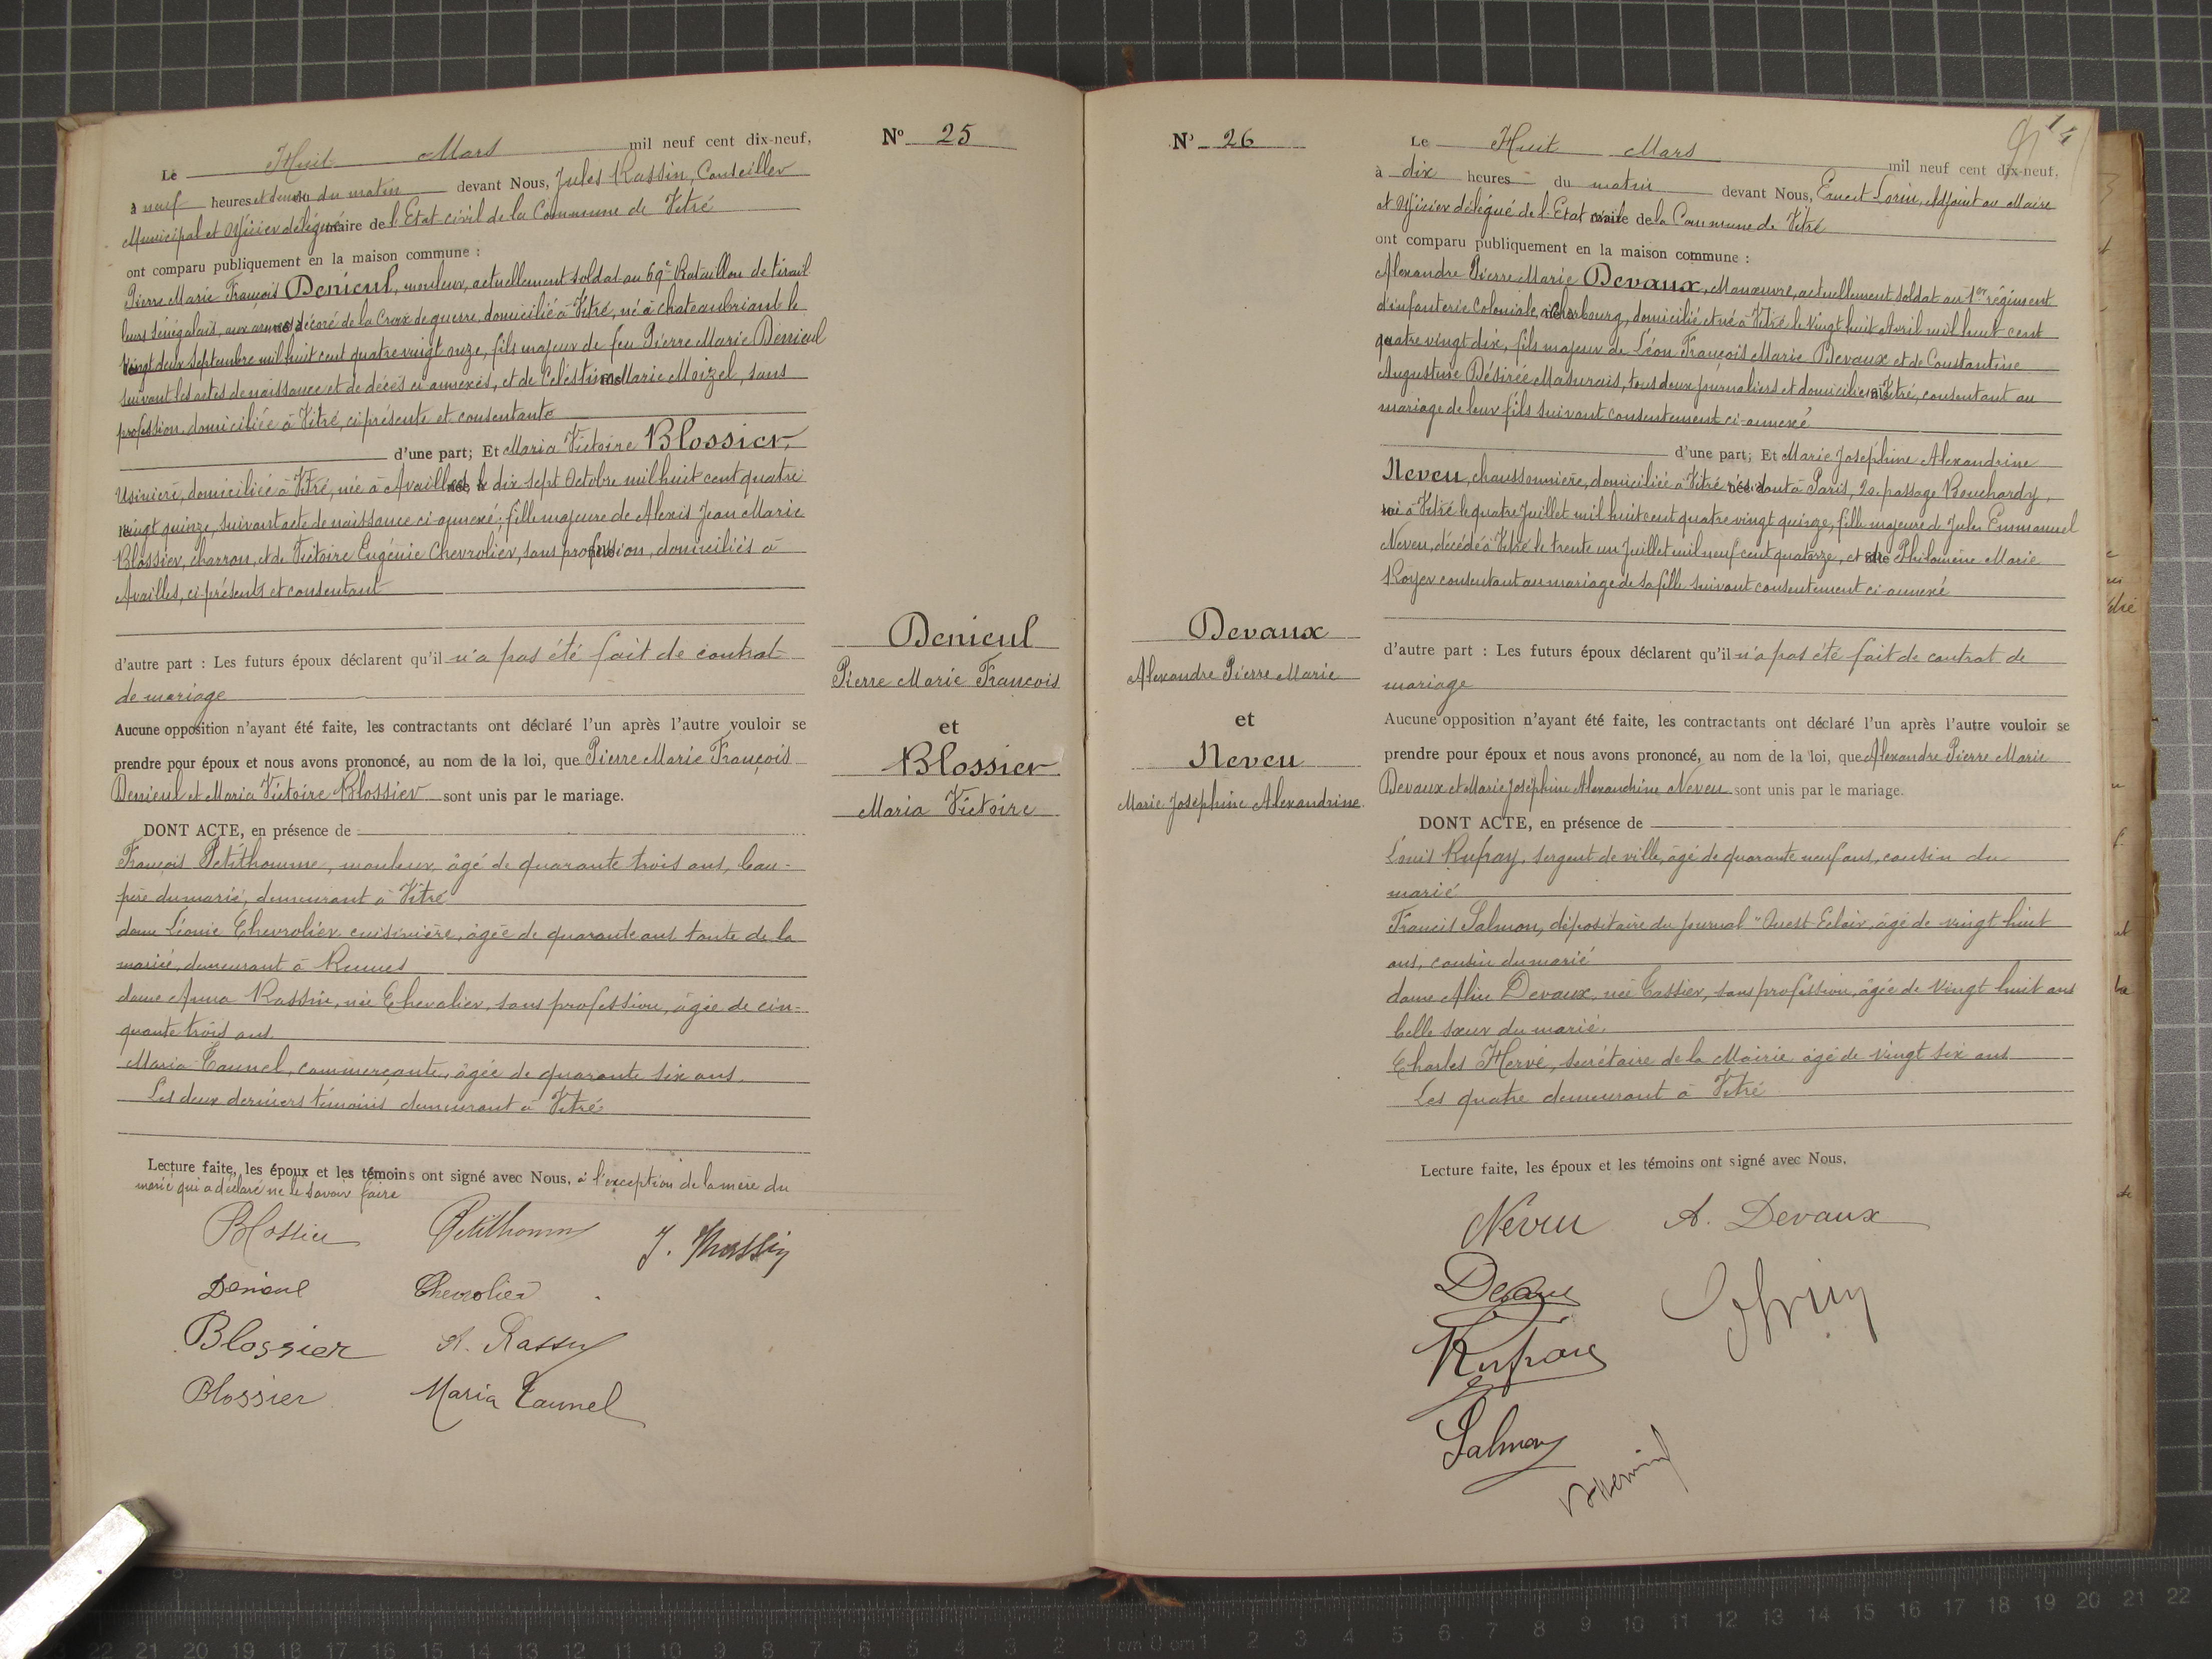 Nº 25
Le Huit Mars mil neuf cent dix-neuf,
à neuf heures et demie du matin devant Nous, Jules Rassin, Conseiller
Municipal et Officier délégué maire de l'Etat civil de la Commune de Vitré
ont comparu publiquement en la maison commune :
Pierre Marie François Denieul, mouleur, actuellement soldat au 69e Bataillon de tirail
leurs Sénégalais, aux armées, décoré de la Croix de guerre, domicilié à Vitré, né à Chateaubriant le
vingt deux Septembre mil huit cent quatre vingt onze, fils majeur de feu Pierre Marie Denieul
suivant les actes de naissance et de décès ci-annexés, et de Célestine Marie Moizel, sans
profession, domiciliée à Vitré, ci présente et consentante
d'une part; Et Maria Victoire Blossier,
Usinière, domiciliée à Vitré, née à Availles, le dix sept Octobre mil huit cent quatre
vingt quinze, suivant acte de naissance ci-annexé; fille majeure de Alexis Jean Marie
Blossier, charron, et de Victoire Eugénie Chevrolier, sans profession, domiciliés à
Availles, ci-présents et consentant
d'autre part : Les futurs époux déclarent qu'il n'a pas été fait de contrat
de mariage
Aucune opposition n'ayant été faite, les contractants ont déclaré l'un après l'autre vouloir se
prendre pour époux et nous avons prononcé, au nom de la loi, que Pierre Marie François
Denieul et Maria Victoire Blossier sont unis par le mariage.
DONT ACTE, en présence de
François Petithomme, mouleur, âgé de quarante trois ans, beau-
père du marié, demeurant à Vitré
dame Léonie Chevrolier cuisinière, âgée de quarante ans tante de la
mariée, demeurant à Rennes
dame Anna Rassin, née Chevalier, sans profession, âgée de cin-
quante trois ans
Maria Taunel, commerçante, âgée de quarante six ans.
Les deux derniers témoins demeurant à Vitré
Lecture faite, les époux et les témoins ont signé avec Nous, à l'exception de la mère du
marié qui a déclaré ne le savoir faire
Blossier Petithomme J. Rassin
Denieul Chevrolier
Blossier A. Rassin
Blossier Maria Taunel
Denieul
Pierre Marie François
et
Blossier
Maria Victoire
Nº 26
Devaux
Alexandre Pierre Marie
et
Neveu
Marie Joséphine Alexandrine
14
Le Huit Mars mil neuf cent dix-neuf,
à dix heures du matin devant Nous, Ernest Lorin, Adjoint au Maire
et Officier délégué de l'Etat civil de la Commune de Vitré
ont comparu publiquement en la maison commune :
Alexandre Pierre Marie Devaux, Manœuvre, actuellement soldat au 1er régiment
d'infanterie Coloniale, à Cherbourg, domicilié et né à Vitré le vingt huit Avril mil huit cent
quatre vingt dix, fils majeur de Léon François Marie Devaux et de Constantine
Augustine Désirée Masurais, tous deux journaliers et domiciliés à Vitré, consentant au
mariage de leur fils suivant consentement ci-annexé
d'une part; Et Marie Joséphine Alexandrine
Neveu, chaussonnière, domiciliée à Vitré résidant à Paris, 20 passage Bouchardy,
née à Vitré le quatre Juillet mil huit cent quatre vingt quinze, fille majeure de Jules Emmanuel
Neveu, décédé à Vitré le trente un Juillet mil neuf cent quatorze, et de Philomène Marie
Royer consentant au mariage de sa fille suivant consentement ci-annexé
d'autre part : Les futurs époux déclarent qu'il n'a pas été fait de contrat de
mariage
Aucune opposition n'ayant été faite, les contractants ont déclaré l'un après l'autre vouloir se
prendre pour époux et nous avons prononcé, au nom de la loi, que Alexandre Pierre Marie
Devaux et Marie Joséphine Alexandrine Neveu sont unis par le mariage.
DONT ACTE, en présence de
Louis Rufray, sergent de ville, âgé de quarante neuf ans, cousin du
marié
Francis Salmon, dépositaire du journal "Ouest Eclair, âgé de vingt huit
ans, cousin du marié
dame Aline Devaux, née Tassier, sans profession, âgée de vingt huit ans
belle sœur du marié
Charles Hervé, secrétaire de la Mairie âgé de vingt six ans
Les quatre demeurant à Vitré
Lecture faite, les époux et les témoins ont signé avec Nous.
Neveu A. Devaux
Devaux
Rufray
Salmon
1 cm 0 cm 1